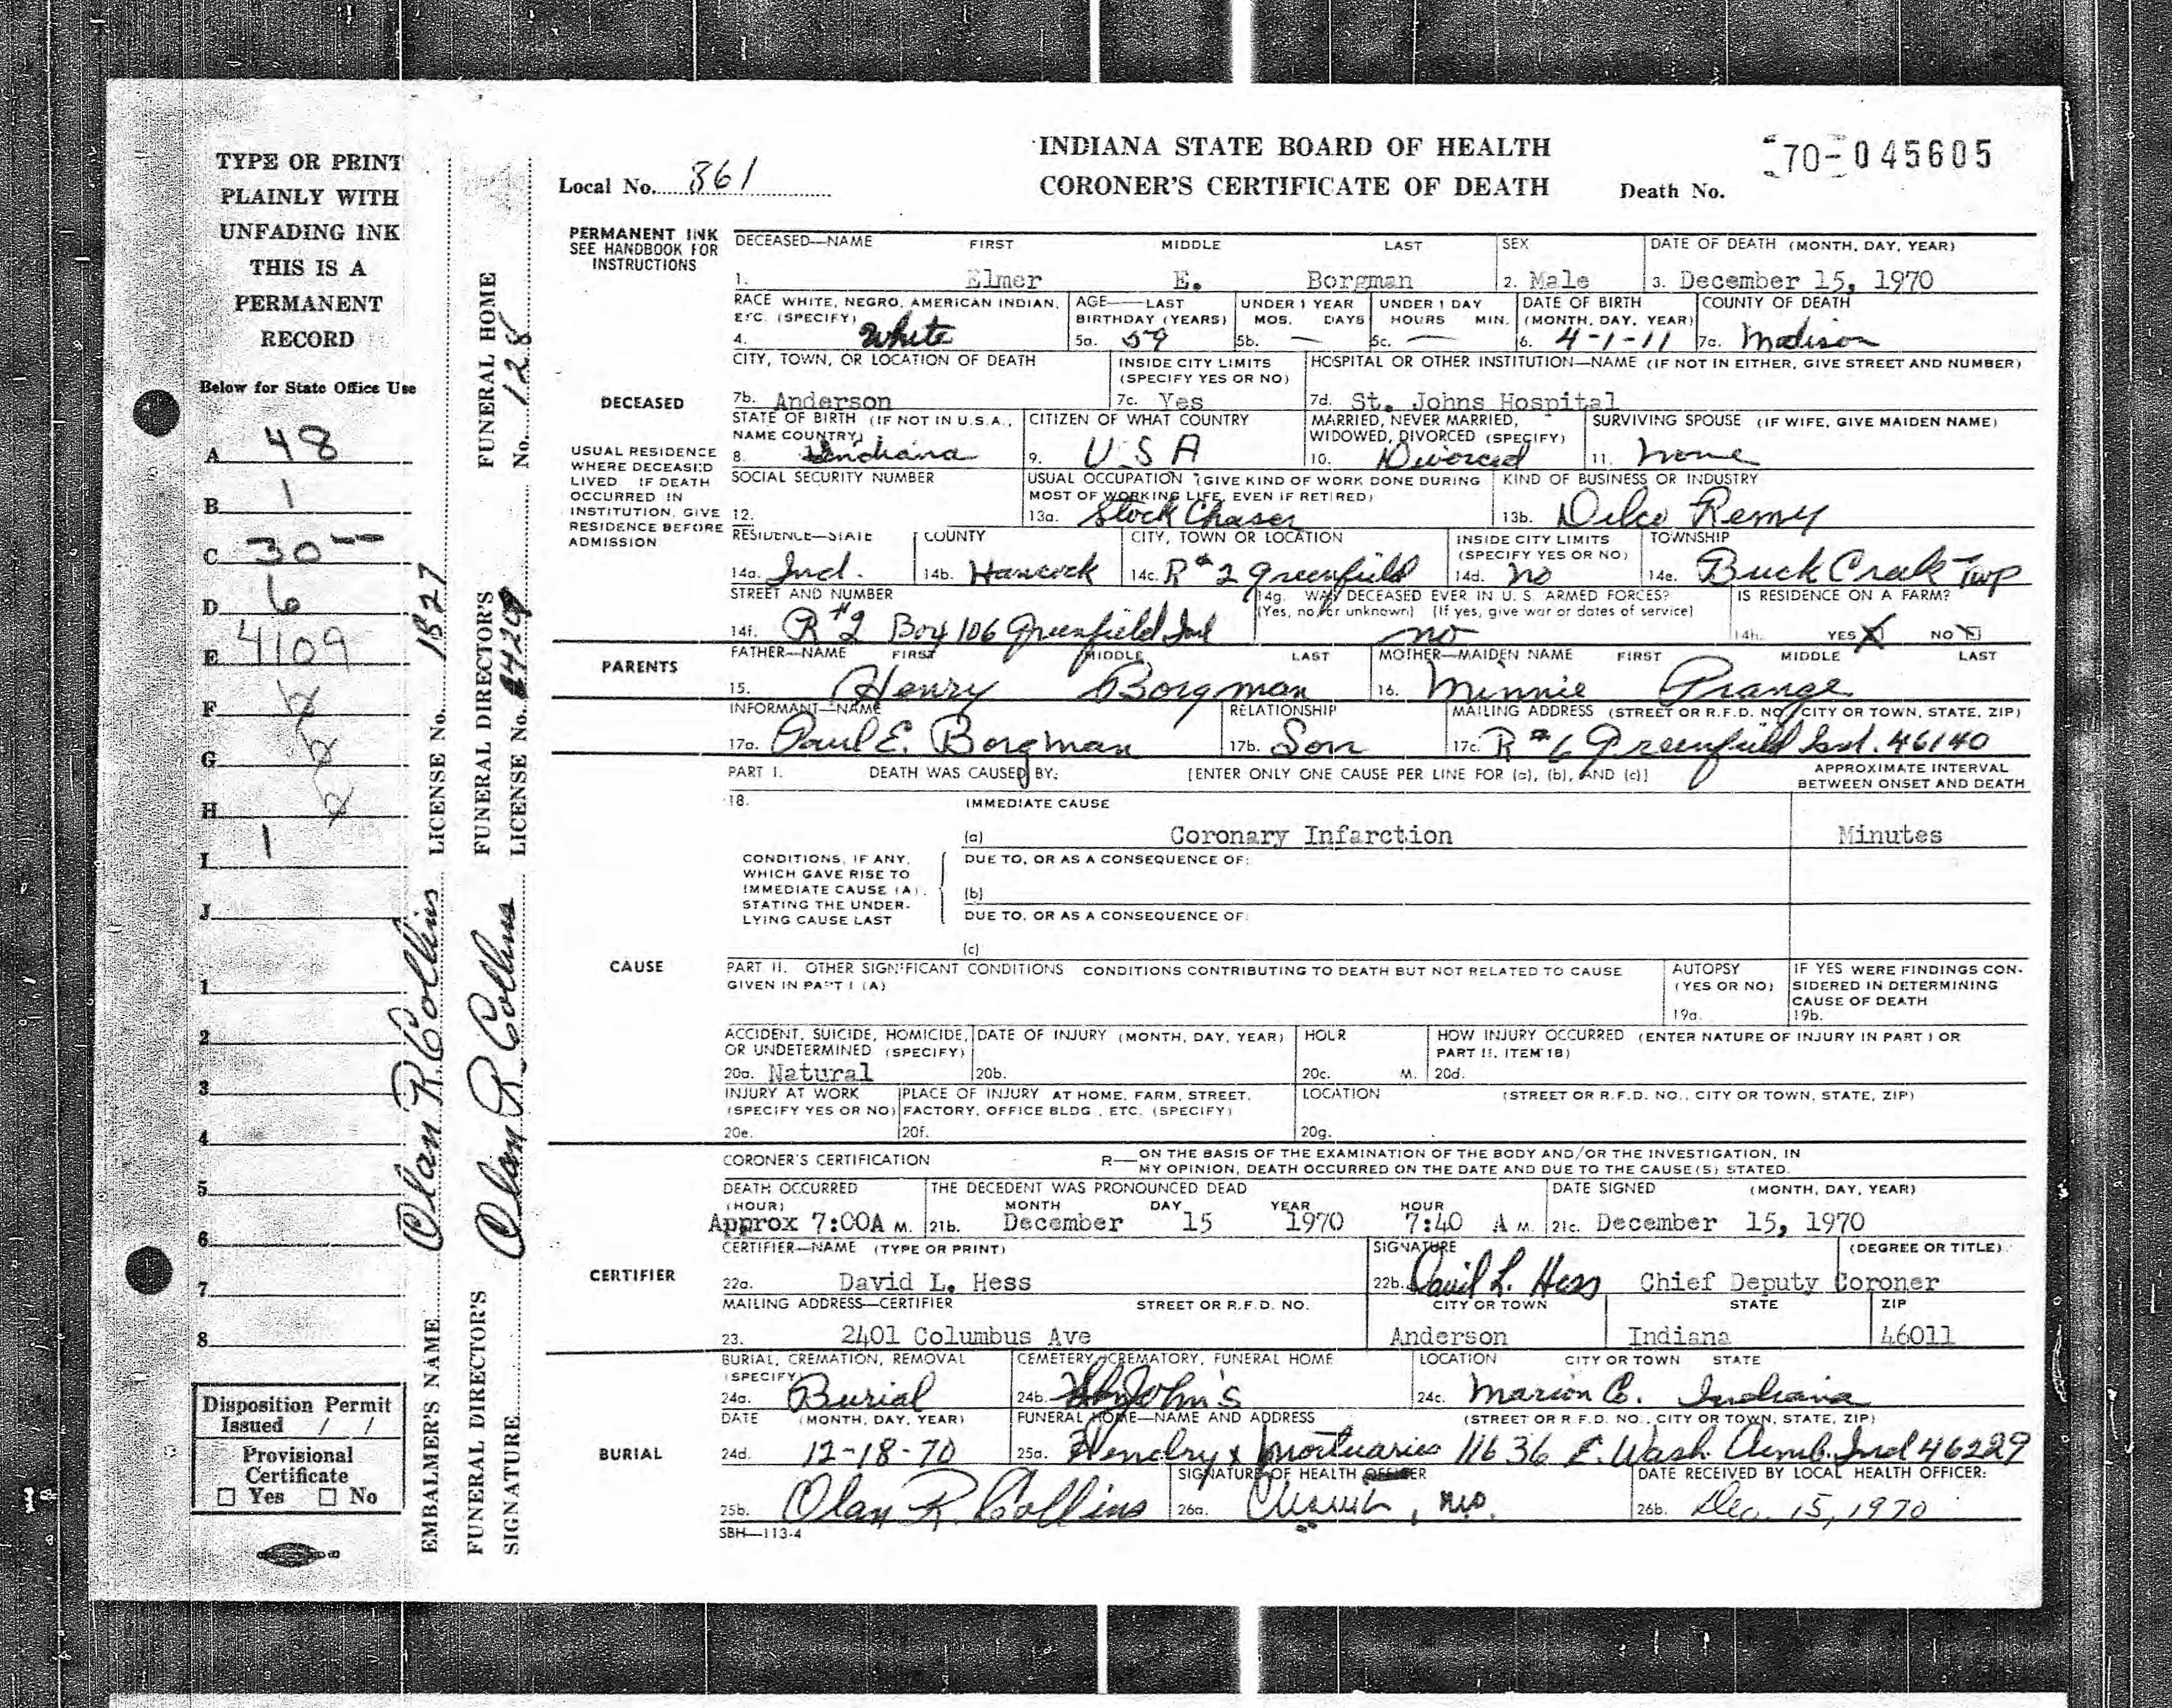 INDIANA STATE BOARD OF HEALTH
CORONER'S CERTIFICATE OF DEATH
Local No. 861
Death No. 70-045605
TYPE OR PRINT
PLAINLY WITH
UNFADING INK
THIS IS A
PERMANENT
RECORD
Below for State Office Use
A 48
B 1
C 30--
D 6
E 4109
F
G
H
I 1
J
1
2
3
4
5
6
7
8
Disposition Permit
Issued / /
Provisional
Certificate
☐ Yes ☐ No
EMBALMER'S NAME Olan R. Collins LICENSE No. 1827
FUNERAL DIRECTOR'S SIGNATURE Olan R. Collins FUNERAL DIRECTOR'S LICENSE No.
FUNERAL HOME No. 128
PERMANENT INK
SEE HANDBOOK FOR
INSTRUCTIONS
DECEASED
USUAL RESIDENCE
WHERE DECEASED
LIVED IF DEATH
OCCURRED IN
INSTITUTION, GIVE
RESIDENCE BEFORE
ADMISSION
DECEASED—NAME FIRST MIDDLE LAST SEX DATE OF DEATH (MONTH, DAY, YEAR)
1. Elmer E. Borgman 2. Male 3. December 15, 1970
RACE WHITE, NEGRO, AMERICAN INDIAN, AGE—LAST UNDER 1 YEAR UNDER 1 DAY DATE OF BIRTH COUNTY OF DEATH
ETC. (SPECIFY) BIRTHDAY (YEARS) MOS. DAYS HOURS MIN. (MONTH, DAY, YEAR)
4. White 5a. 59 5b. — 5c. — 6. 4-1-11 7a. Madison
CITY, TOWN, OR LOCATION OF DEATH INSIDE CITY LIMITS HOSPITAL OR OTHER INSTITUTION—NAME (IF NOT IN EITHER, GIVE STREET AND NUMBER)
(SPECIFY YES OR NO)
7b. Anderson 7c. Yes 7d. St. Johns Hospital
STATE OF BIRTH (IF NOT IN U.S.A., CITIZEN OF WHAT COUNTRY MARRIED, NEVER MARRIED, SURVIVING SPOUSE (IF WIFE, GIVE MAIDEN NAME)
NAME COUNTRY) WIDOWED, DIVORCED (SPECIFY)
8. Indiana 9. USA 10. Divorced 11. none
SOCIAL SECURITY NUMBER USUAL OCCUPATION (GIVE KIND OF WORK DONE DURING KIND OF BUSINESS OR INDUSTRY
MOST OF WORKING LIFE, EVEN IF RETIRED)
12. 13a. Stock Chaser 13b. Delco Remy
RESIDENCE—STATE COUNTY CITY, TOWN OR LOCATION INSIDE CITY LIMITS TOWNSHIP
(SPECIFY YES OR NO)
14a. Ind. 14b. Hancock 14c. R#2 Greenfield 14d. no 14e. Buck Creek Twp
STREET AND NUMBER 14g. WAS DECEASED EVER IN U. S. ARMED FORCES? IS RESIDENCE ON A FARM?
(Yes, no or unknown) (If yes, give war or dates of service)
14f. R#2 Box 106 Greenfield Ind no 14h. YES ☒ NO ☐
PARENTS
FATHER—NAME FIRST MIDDLE LAST MOTHER—MAIDEN NAME FIRST MIDDLE LAST
15. Henry Borgman 16. Minnie Prange
INFORMANT—NAME RELATIONSHIP MAILING ADDRESS (STREET OR R.F.D. NO. CITY OR TOWN, STATE, ZIP)
17a. Paul E. Borgman 17b. Son 17c. R#6 Greenfield Ind. 46140
CAUSE
PART I. DEATH WAS CAUSED BY: [ENTER ONLY ONE CAUSE PER LINE FOR (a), (b), AND (c)] APPROXIMATE INTERVAL
BETWEEN ONSET AND DEATH
18. IMMEDIATE CAUSE
(a) Coronary Infarction Minutes
CONDITIONS, IF ANY,
WHICH GAVE RISE TO
IMMEDIATE CAUSE (A),
STATING THE UNDER-
LYING CAUSE LAST
DUE TO, OR AS A CONSEQUENCE OF:
(b)
DUE TO, OR AS A CONSEQUENCE OF:
(c)
PART II. OTHER SIGNIFICANT CONDITIONS CONDITIONS CONTRIBUTING TO DEATH BUT NOT RELATED TO CAUSE AUTOPSY IF YES WERE FINDINGS CON-
GIVEN IN PART I (A) (YES OR NO) SIDERED IN DETERMINING
CAUSE OF DEATH
19a. 19b.
ACCIDENT, SUICIDE, HOMICIDE, DATE OF INJURY (MONTH, DAY, YEAR) HOUR HOW INJURY OCCURRED (ENTER NATURE OF INJURY IN PART I OR
OR UNDETERMINED (SPECIFY) PART II, ITEM 18)
20a. Natural 20b. 20c. M. 20d.
INJURY AT WORK PLACE OF INJURY AT HOME, FARM, STREET, LOCATION (STREET OR R.F.D. NO., CITY OR TOWN, STATE, ZIP)
(SPECIFY YES OR NO) FACTORY, OFFICE BLDG., ETC. (SPECIFY)
20e. 20f. 20g.
CERTIFIER
CORONER'S CERTIFICATION R— ON THE BASIS OF THE EXAMINATION OF THE BODY AND/OR THE INVESTIGATION, IN
MY OPINION, DEATH OCCURRED ON THE DATE AND DUE TO THE CAUSE(S) STATED.
DEATH OCCURRED THE DECEDENT WAS PRONOUNCED DEAD DATE SIGNED (MONTH, DAY, YEAR)
(HOUR) MONTH DAY YEAR HOUR
Approx 7:00A M. 21b. December 15 1970 7:40 A M. 21c. December 15, 1970
CERTIFIER—NAME (TYPE OR PRINT) SIGNATURE (DEGREE OR TITLE)
22a. David L. Hess 22b. David L. Hess Chief Deputy Coroner
MAILING ADDRESS—CERTIFIER STREET OR R.F.D. NO. CITY OR TOWN STATE ZIP
23. 2401 Columbus Ave Anderson Indiana 46011
BURIAL
BURIAL, CREMATION, REMOVAL CEMETERY, CREMATORY, FUNERAL HOME LOCATION CITY OR TOWN STATE
(SPECIFY)
24a. Burial 24b. St John's 24c. Marion Co. Indiana
DATE (MONTH, DAY, YEAR) FUNERAL HOME—NAME AND ADDRESS (STREET OR R.F.D. NO., CITY OR TOWN, STATE, ZIP)
24d. 12-18-70 25a. Mortuaries 11636 E. Wash. Cumb. Ind 46229
SIGNATURE OF HEALTH OFFICER DATE RECEIVED BY LOCAL HEALTH OFFICER:
25b. Olan R. Collins 26a. M.D. 26b. Dec. 15, 1970
SBH—113-4